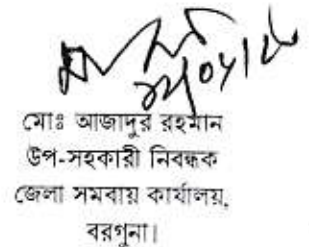 মোঃ আজাদুর রহমান
উপ-সহকারী নিবন্ধক
জেলা সমবায় কার্যালয়,
বরগুনা।